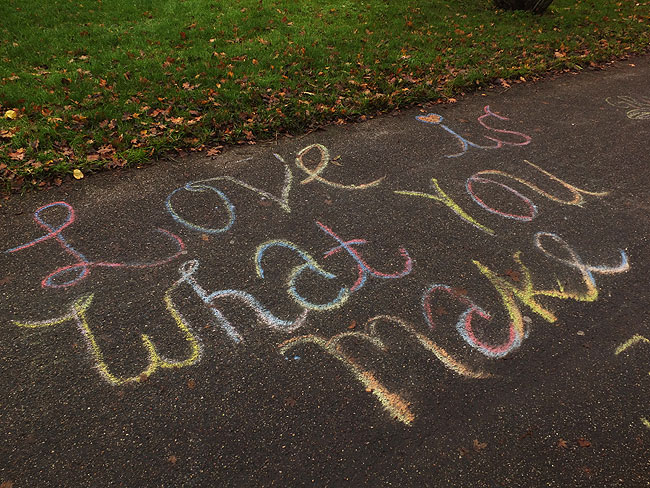 Love is
What You
make